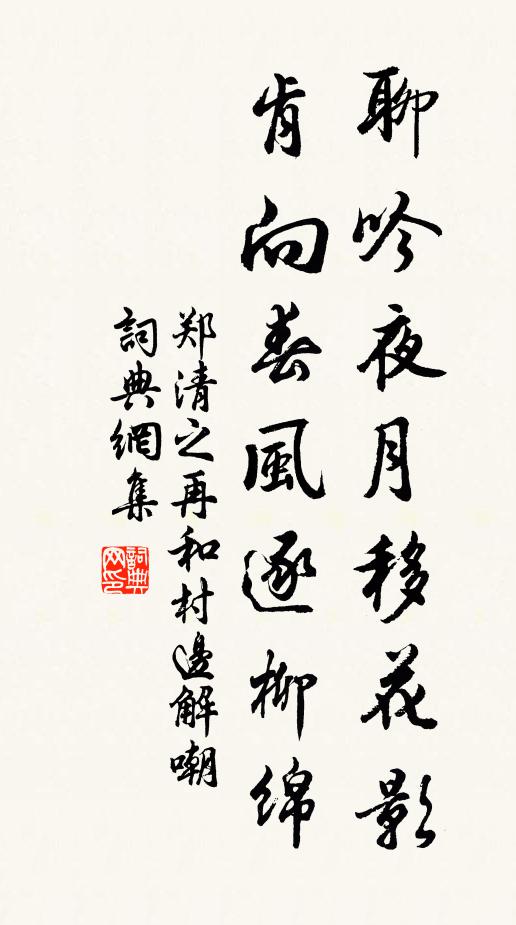 聊吟夜月移花影
肯向春風逐柳绵
郑清之再和村邊解嘲
詞典網集
詞典网印